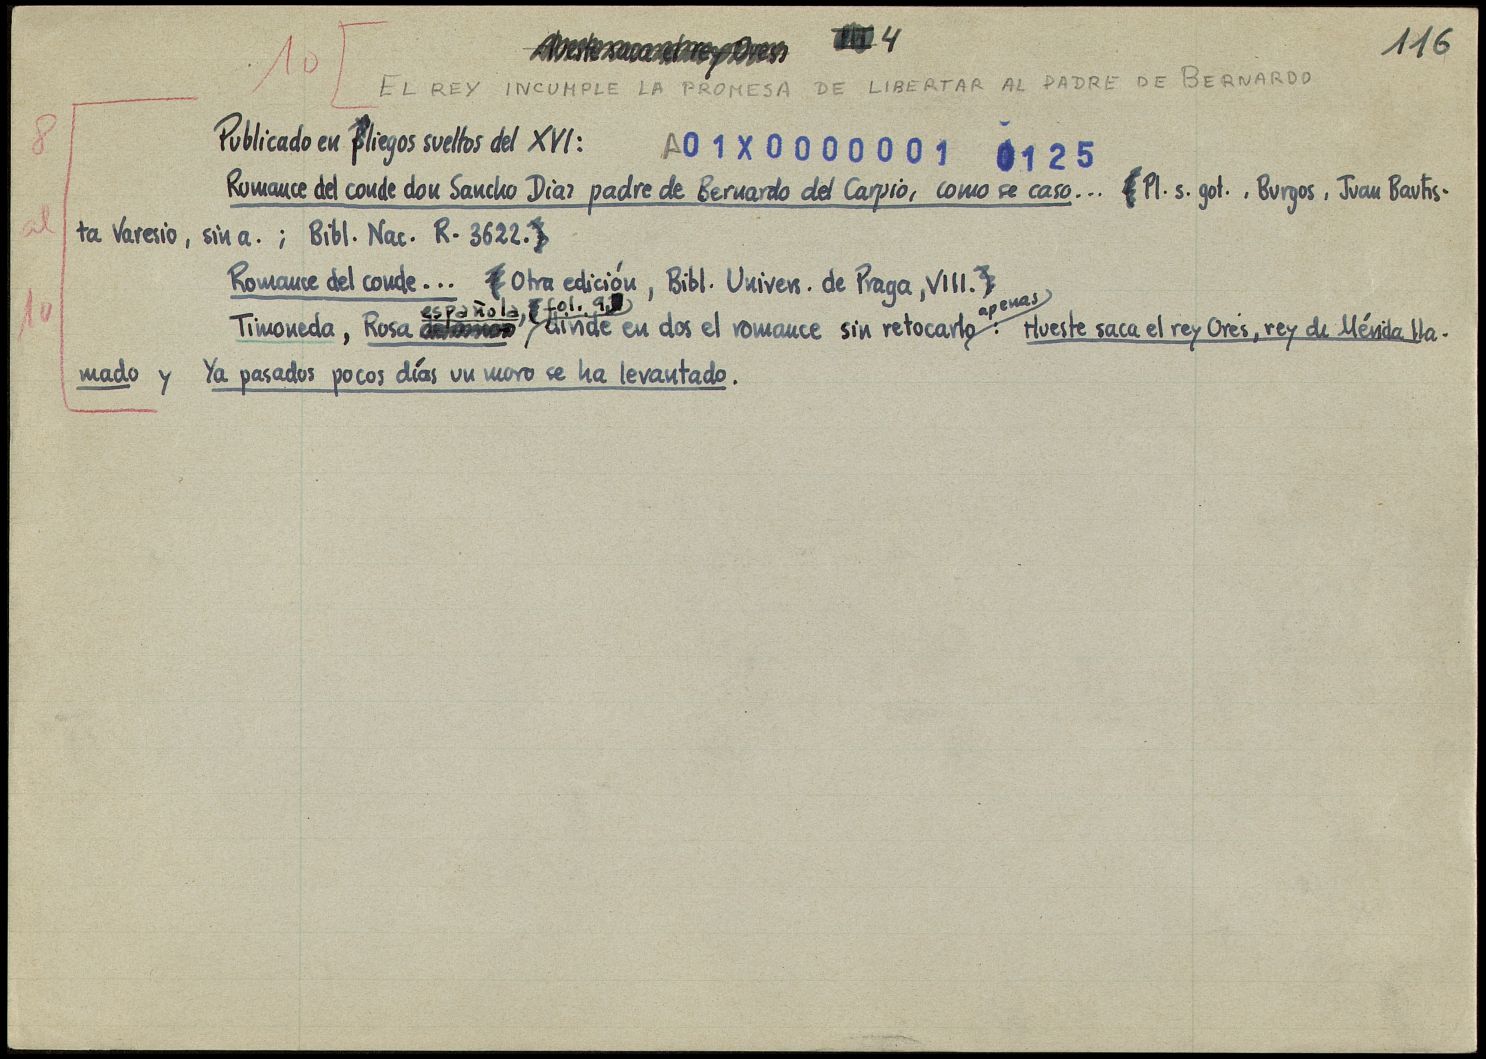 Hueste saca el rey Ores 4 116
10
EL REY INCUMPLE LA PROMESA DE LIBERTAR AL PADRE DE BERNARDO
8 al 10
Publicado en Pliegos sueltos del XVI: A01X0000001 0125
Romance del conde don Sancho Diaz padre de Bernardo del Carpio, como se caso... (Pl. s. got., Burgos, Juan Bautis-
ta Varesio, sin a. ; Bibl. Nac. R- 3622.)
Romance del conde... (Otra edición, Bibl. Univers. de Praga, VIII.)
española, (fol. 9) apenas
Timoneda, Rosa divide en dos el romance sin retocarlo : Hueste saca el rey Orés, rey de Mérida lla-
mado y Ya pasados pocos días un moro se ha levantado.